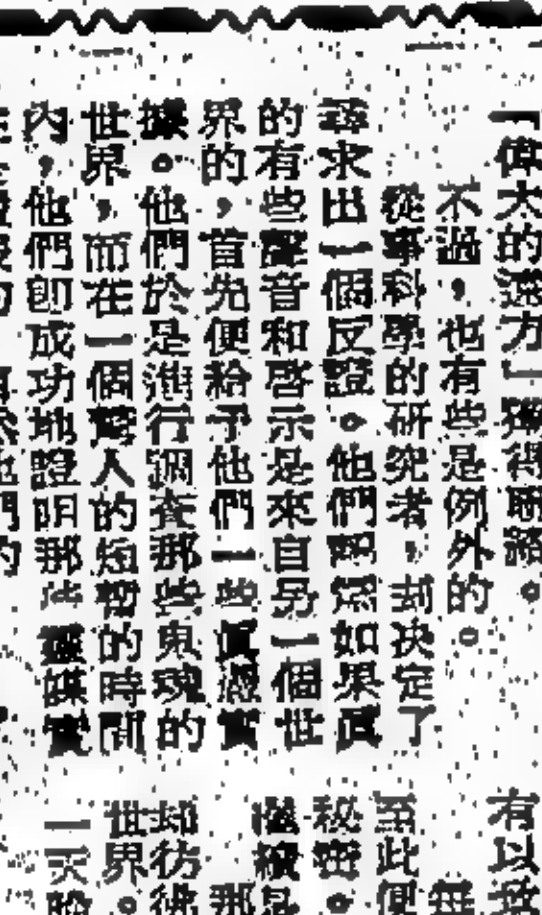 「偉大的遠方」獲得聯絡。
不過，也有些是例外的。
從事科學的研究者，却决定了
尋求出一個反證。他們認爲如果眞
的有些聲音和啓示是來自另一個世
界的，首先便給予他們一些眞憑實
據。他們於是進行調查那些鬼魂的
世界，而在一個驚人的短暫的時間
內，他們卽成功地證明那些靈媒實
有以
至此便
秘密。
繼續是
那
却彷彿
世界。
一天